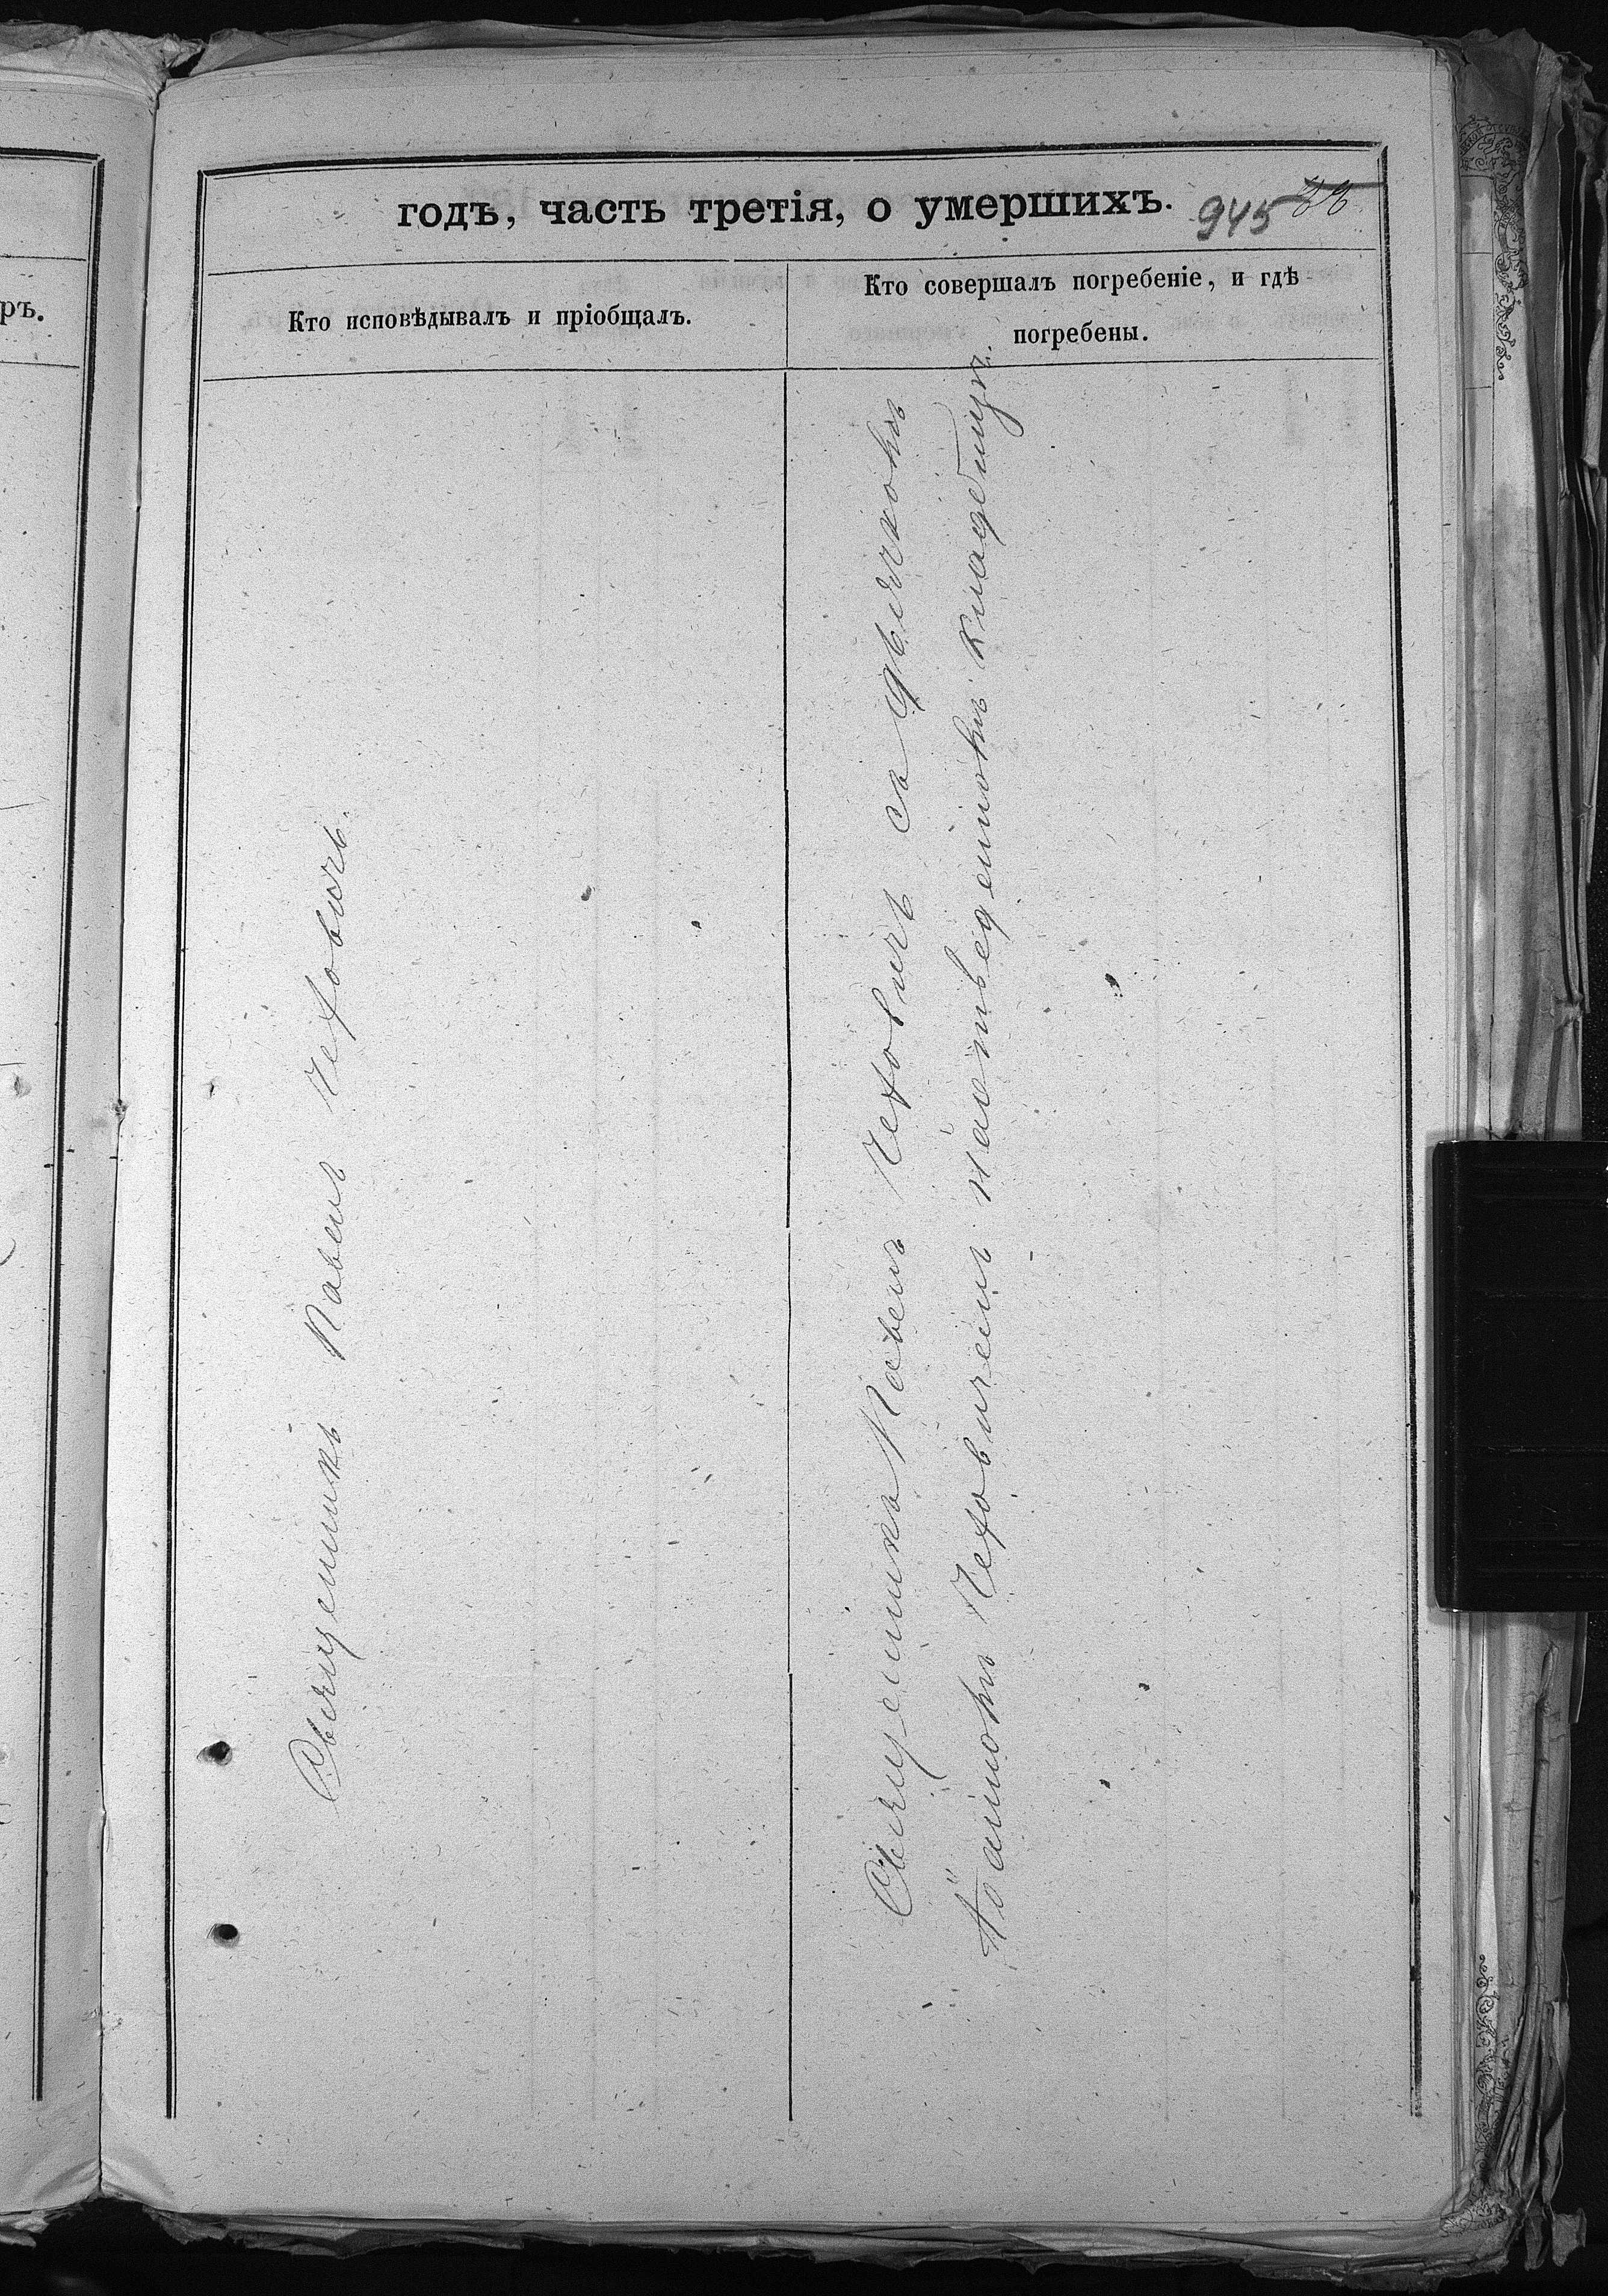 ръ.
годъ, часть третія, о умершихъ. 945
Кто исповѣдывалъ и пріобщалъ.
Кто совершалъ погребеніе, и гдѣ
погребены.
Священникъ Павелъ Чехович.
Священникъ Павелъ Чеховичъ съ дьячкомъ
Чеховичемъ на кладбищѣ.